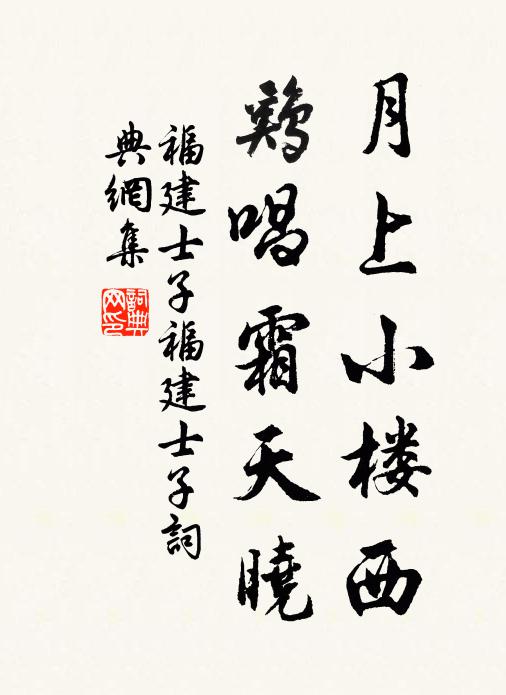 月上小楼西
鷄唱霜天曉
福建士子福建士子詞
典網集
詞典
网印